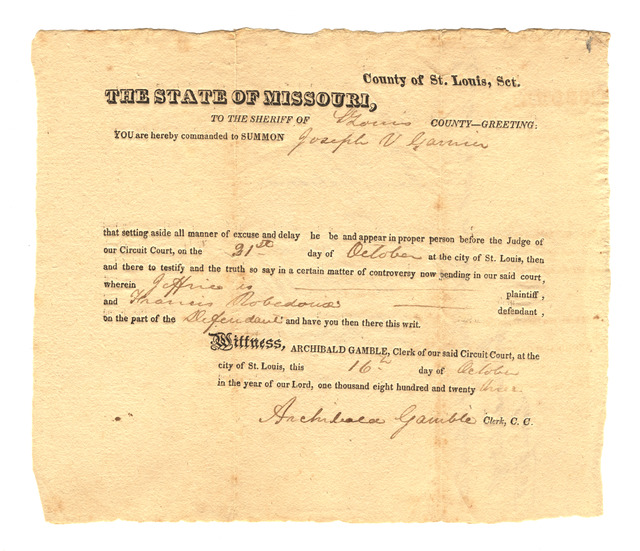 County of St. Louis, Sct.
THE STATE OF MISSOURI,
TO THE SHERIFF OF St Louis COUNTY—GREETING:
YOU are hereby commanded to SUMMON Joseph V Garnier
that setting aside all manner of excuse and delay he be and appear in proper person before the Judge of
our Circuit Court, on the 21st day of October at the city of St. Louis, then
and there to testify and the truth so say in a certain matter of controversy now pending in our said court,
wherein is plaintiff,
and Francis defendant,
on the part of the Defendant and have you then there this writ.
Wittness, ARCHIBALD GAMBLE, Clerk of our said Circuit Court, at the
city of St. Louis, this 16th day of October
in the year of our Lord, one thousand eight hundred and twenty three
Archibald Gamble Clerk, C. C.